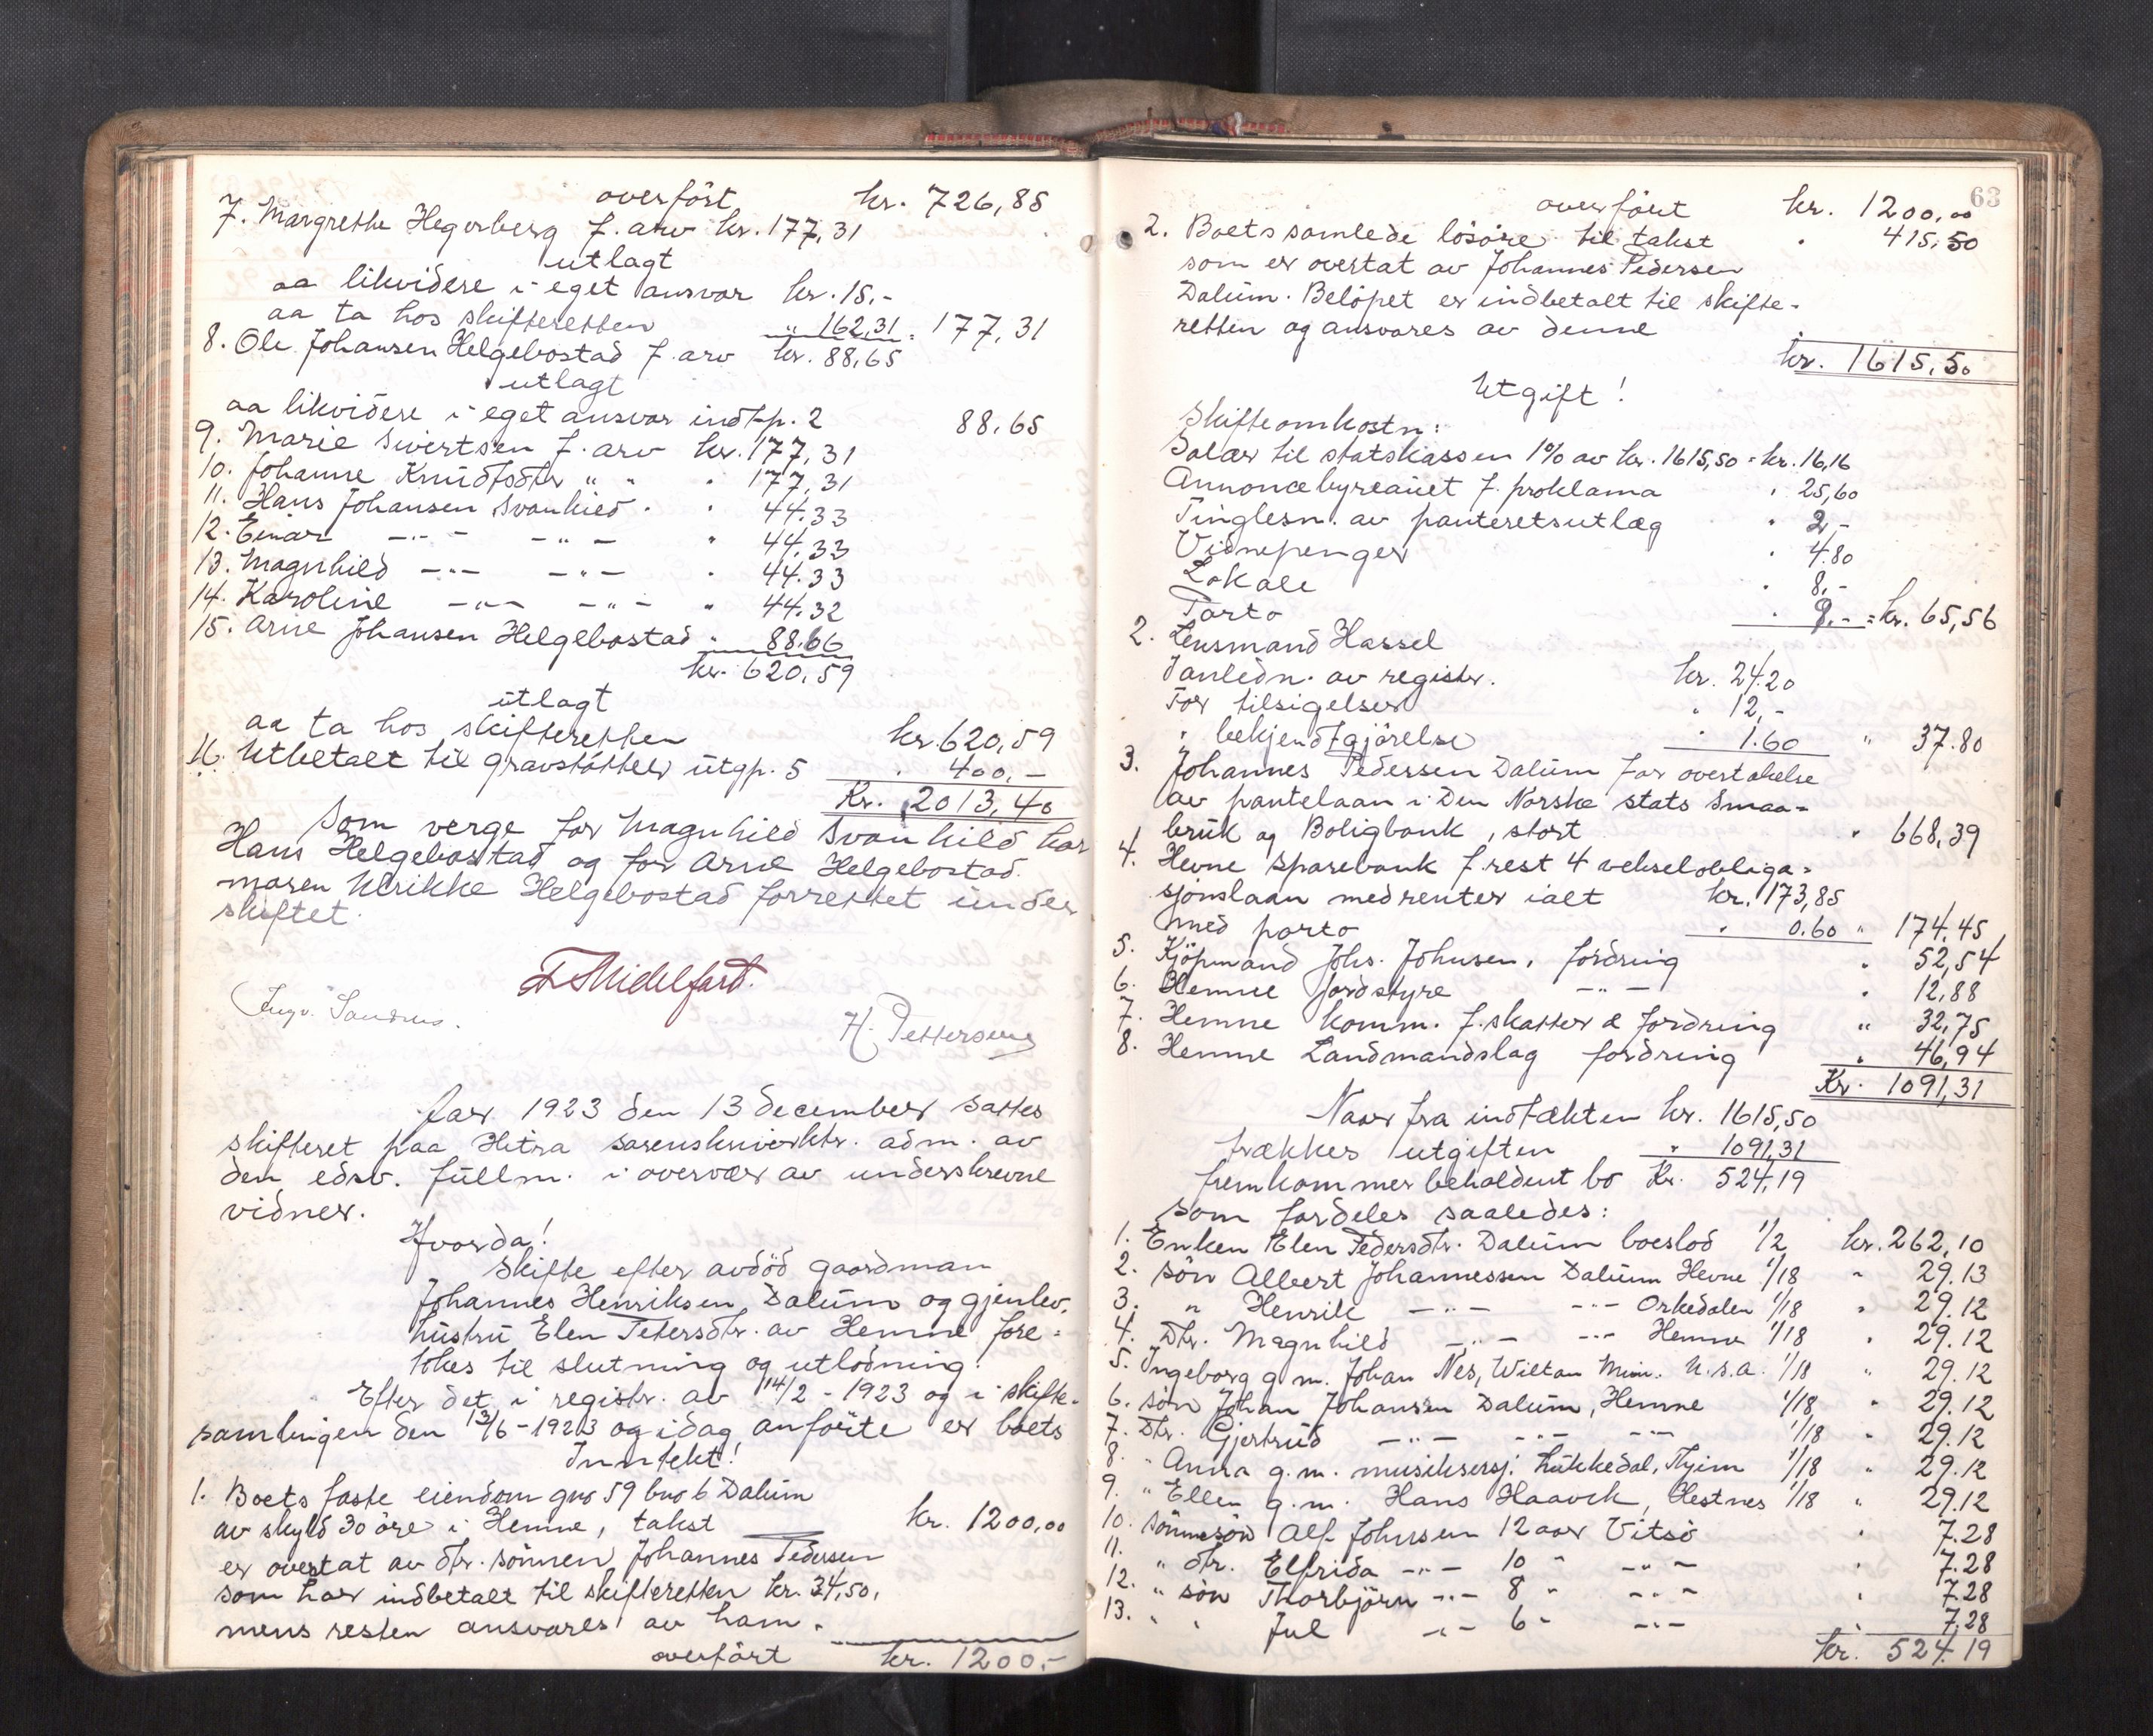 overført kr. 726,85
7. Margrethe Hegerberg f. arv kr. 177,31
utlagt
aa likvidere i eget ansvar kr. 15.-
aa ta hos skifteretten " 162,31 = 177,31
8. Ole Johansen Helgebostad f. arv kr. 88,65
utlagt
aa likvidere i eget ansvar indt.p. 2 88.65
9. Marie Sivertsen f. arv kr. 177,31
10. Johanne Knudtsdtr " " " 177,31
11. Hans Johansen Svanhild . . 44.33
12. Einar -"- -"- " 44.33
13. Magnhild -"- -"- . 44.33
14. Karoline -"- -"- " 44.32
15. Arne Johansen Helgebostad . 88.66
kr. 620,59
utlagt
aa ta hos skifteretten kr. 620,59
16. Utbetalt til gravstøtter utgp. 5 . 400,-
Kr. 2013,40
Som verge for Magnhild Svanhild har
Hans Helgebostad og for Arne Helgebostad
moren Ulrikke Helgebostad forrettet under
skiftet.
Ingv. Sandnes. H. Pettersen
Aar 1923 den 13 december sattes
skifteret paa Hitra sorenskriverktr. adm. av
den edsv. fullm. i overvær av underskrevne
vidner.
Hvorda!
Skifte efter avdöd gaardman
Johannes Henriksen Dalum og gjenlev.
hustru Elen Petersdtr. av Hemne fore=
tokes til slutning og utlodning.
Efter det i registr. av 14/2 - 1923 og i skifte-
samlingen den 13/6 - 1923 og idag anførte er boets
Inntekt!
1. Boets faste eiendom gno 59 bno 6 Dalum
av skyld 30 øre i Hemne, takst kr. 1200,00
er overtat av dtr. sønnen Johannes Pedersen
som har indbetalt til skifteretten kr. 34,50,
mens resten ansvares av ham.
overført kr. 1200.-
63
overført kr. 1200,00
2. Boets samlede løsøre til takst . 415,50
som er overtat av Johannes Pedersen
Dalum. Beløpet er indbetalt til skifte-
retten og ansvares av denne
kr. 1615,50
Utgift!
Skifteomkostn:
Salær til statskassen 1% av kr. 1615,50 = kr. 16,16
Annoncebyreauet f. proklama . 25,60
Tinglesn. av panteretsutlæg . 2,-
Vidnepenger . 4.80
Lokale . 8,-
Porto . 9.- = kr. 65,56
2. Lensmand Hassel
Ianledn. av registr. kr. 24.20
For tilsigelser . 12,-
" bekjendtgjørelse . 1.60 " 37.80
3. Johannes Pedersen Dalum for overtakelse
av pantelaan i Den Norske stats Smaa=
bruk og Boligbank, stort . 668,39
4. Hevne Sparebank f. rest 4 vekselobliga=
sjonslaan med renter ialt kr. 173,85
med porto . 0.60 " 174.45
5. Kjøpmand Johs. Johnsen, fordring . 52,54
6. Hemne jordstyre -"- . 12,88
7. Hemne komm. f. skatter & fordring " 32,75
8. Hemne Landmandslag fordring . 46,94
Kr. 1091,31
Naar fra indtækten kr. 1615,50
trækkes utgiften " 1091,31
fremkommer beholdent bo Kr. 524,19
som fordeles saaledes:
1. Enken Elen Pedersdtr. Dalum boeslod 1/2 kr. 262,10
2. søn Albert Johannessen Dalum Hevne 1/18 " 29.13
3. " Henrik -"- -"- Orkedalen 1/18 . 29.12
4. Dtr. Magnhild -"- -"- Hemne 1/18 . 29.12
5. Ingeborg g.m. Johan Nes, Wiltan Minn. U.S.A. 1/18 " 29.12
6. søn Johan Johansen Dalum, Hemne 1/18 " 29.12
7. Dtr. Gjertrud -"- -"- -"- 1/18 " 29.12
8. " Anna g.m. musiksersj. Lukkedal, Thjem 1/18 " 29.12
9. " Ellen g.m. Hans Haavik, Hestnes 1/18 " 29.12
10. Sønnesøn Alf Johnsen 12 aar Vitsø . 7.28
11. " dtr. Elfrida -"- 10 " -"- . 7.28
12. " søn Thorbjørn -"- 8 " -"- . 7.28
13. " . Jul -"- 6 " -"- . 7.28
kr. 524.19